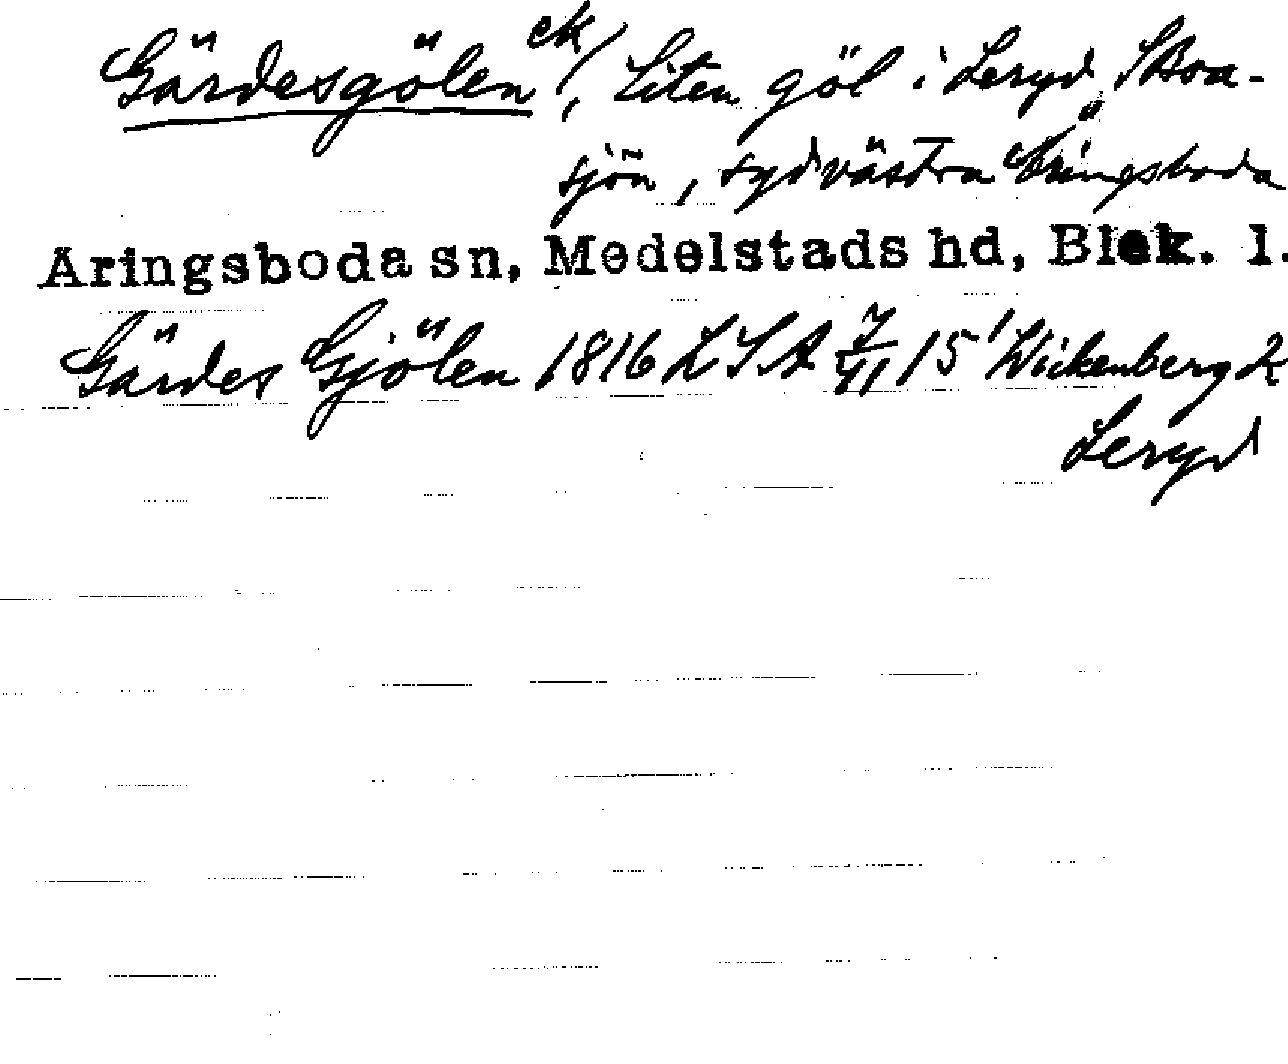 Gärdesgölen ek/, Liten göl i Leryd, SBoa-
sjön, sydvästra Åringsboda
Aringsboda sn, Medelstads hd, Blek. l.
Gärdes Gjölen 1816 LSA 7/VI 15 Wickenberg K
Leryd